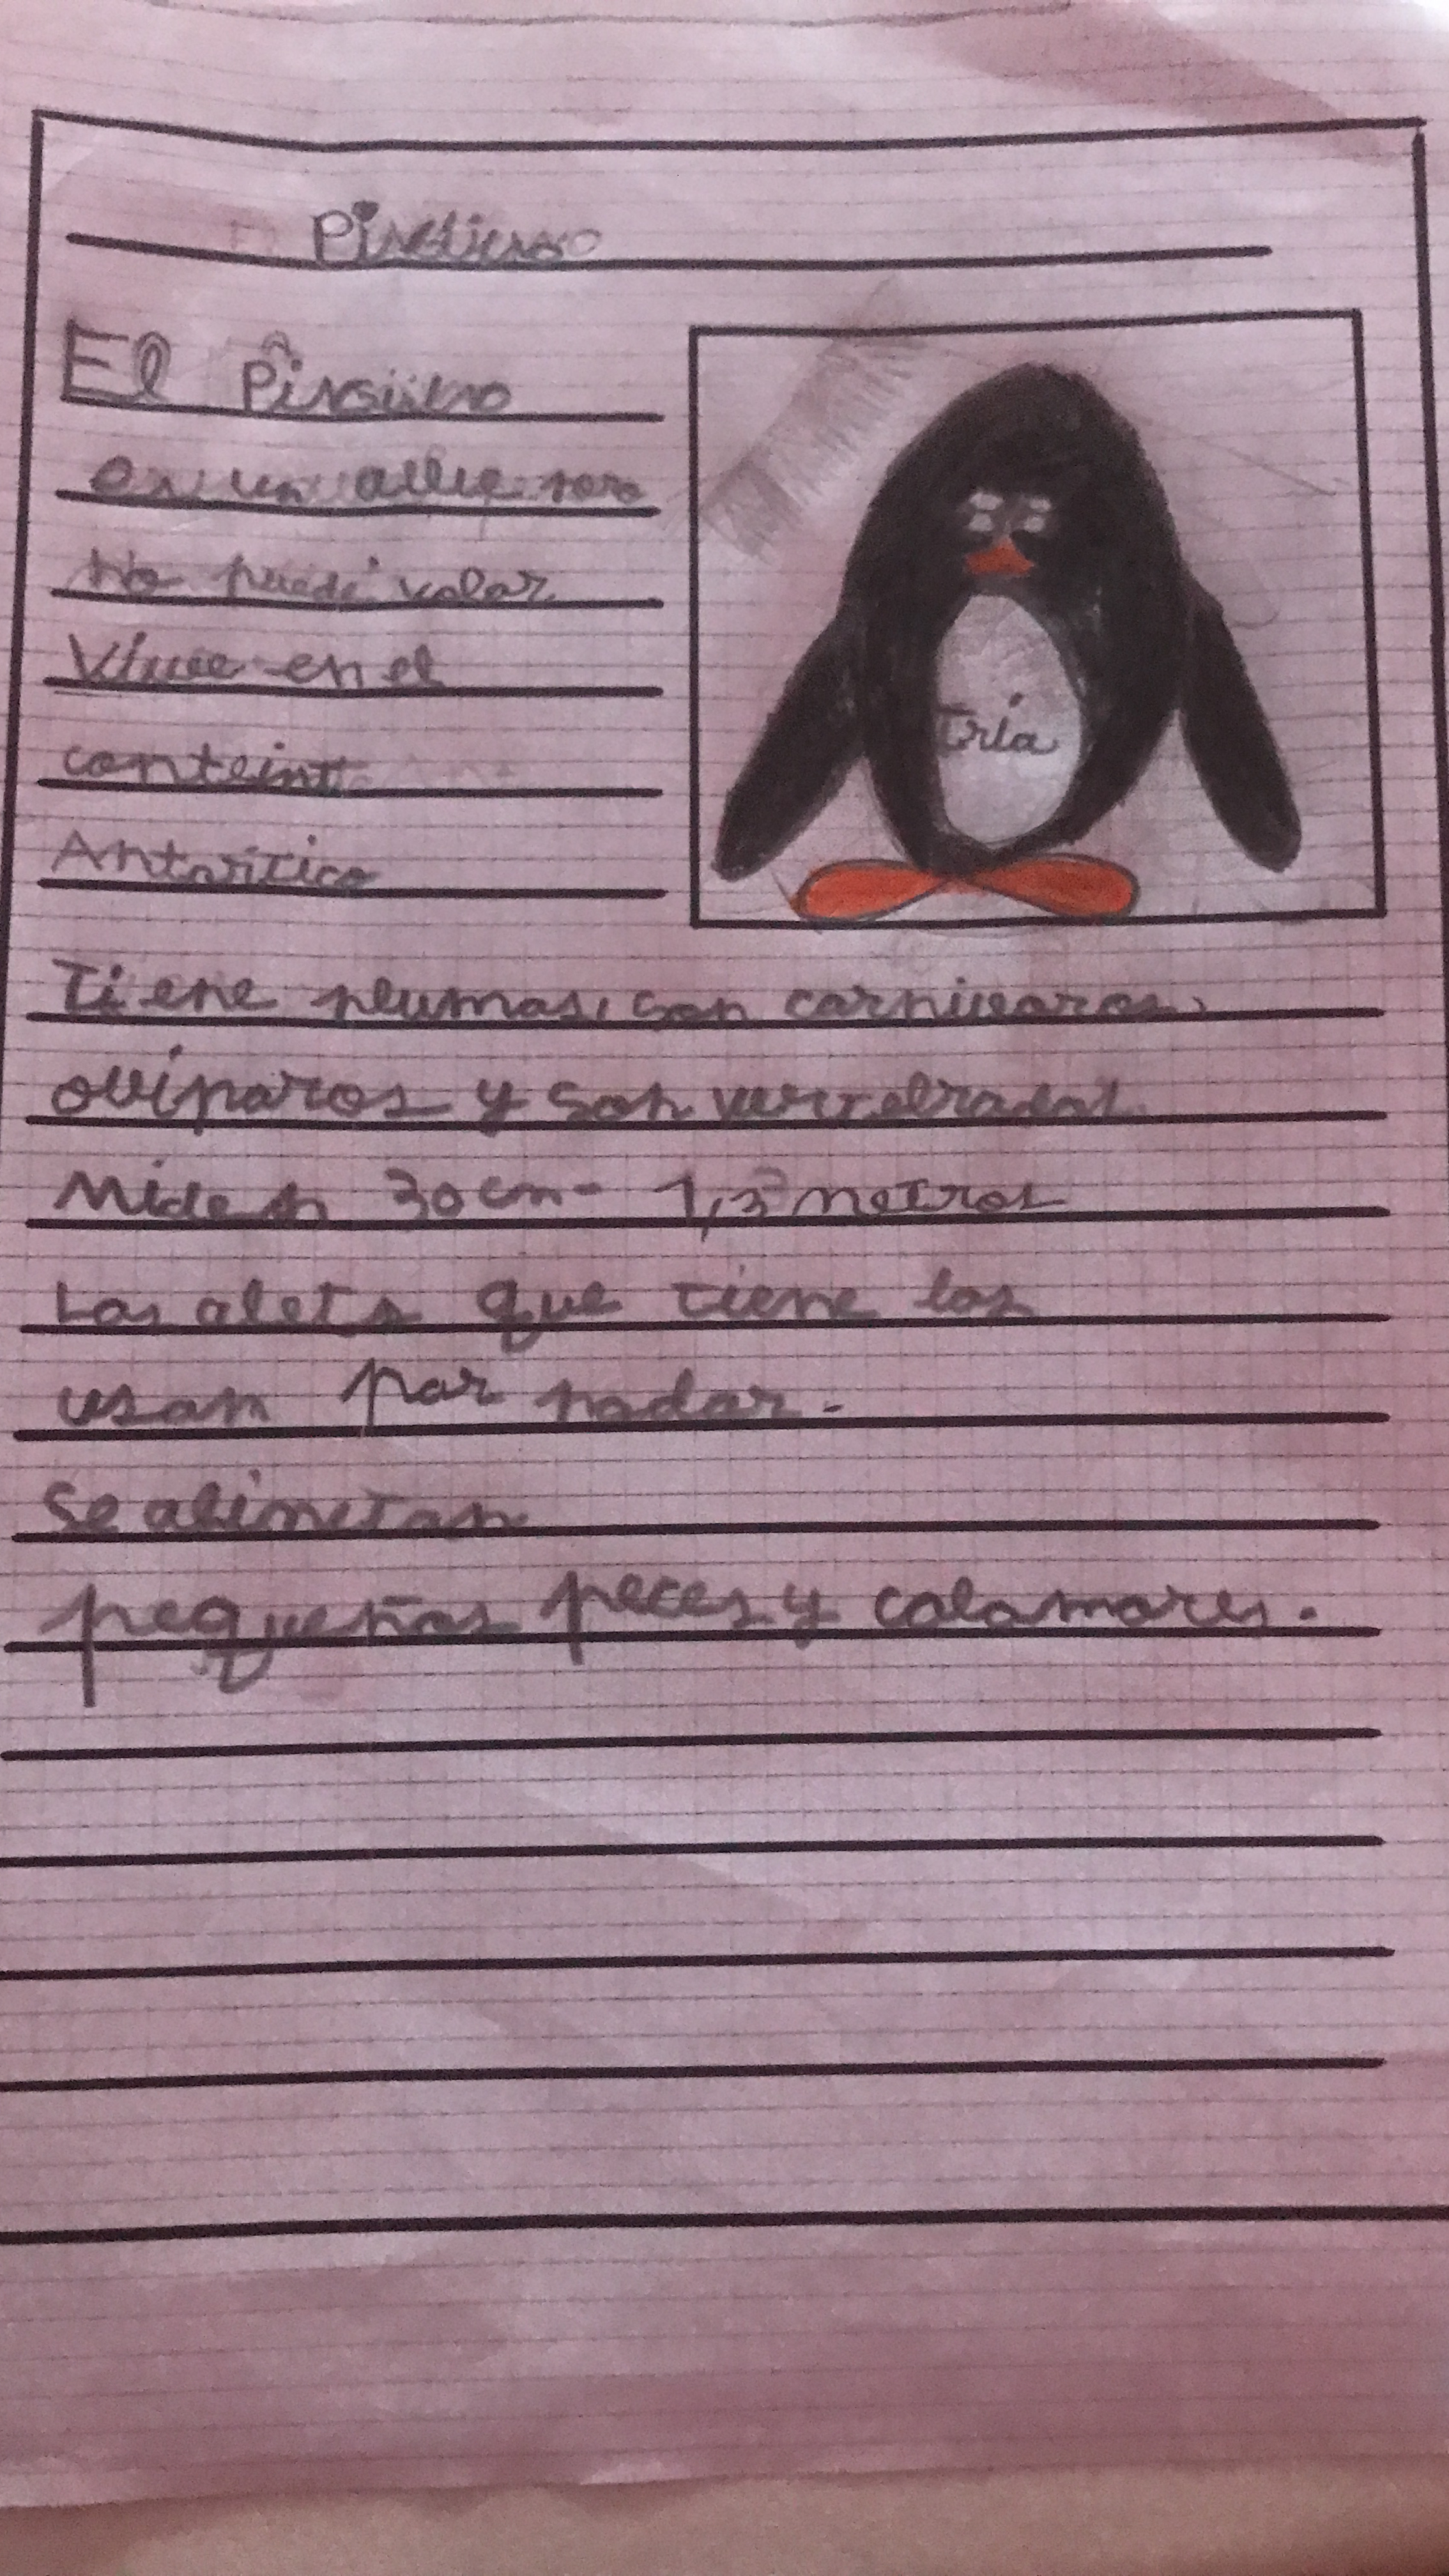 El
es un
No puede volar
Vivee en el
Antartico
Iria
Tiene plumas, son carnivoros,
oviparos y son vertebrados
Miden 30 cm - 1,3 metros
Las alets que tiene las
usan par nadar.
Se alimetan
pequeños peces y calamares.